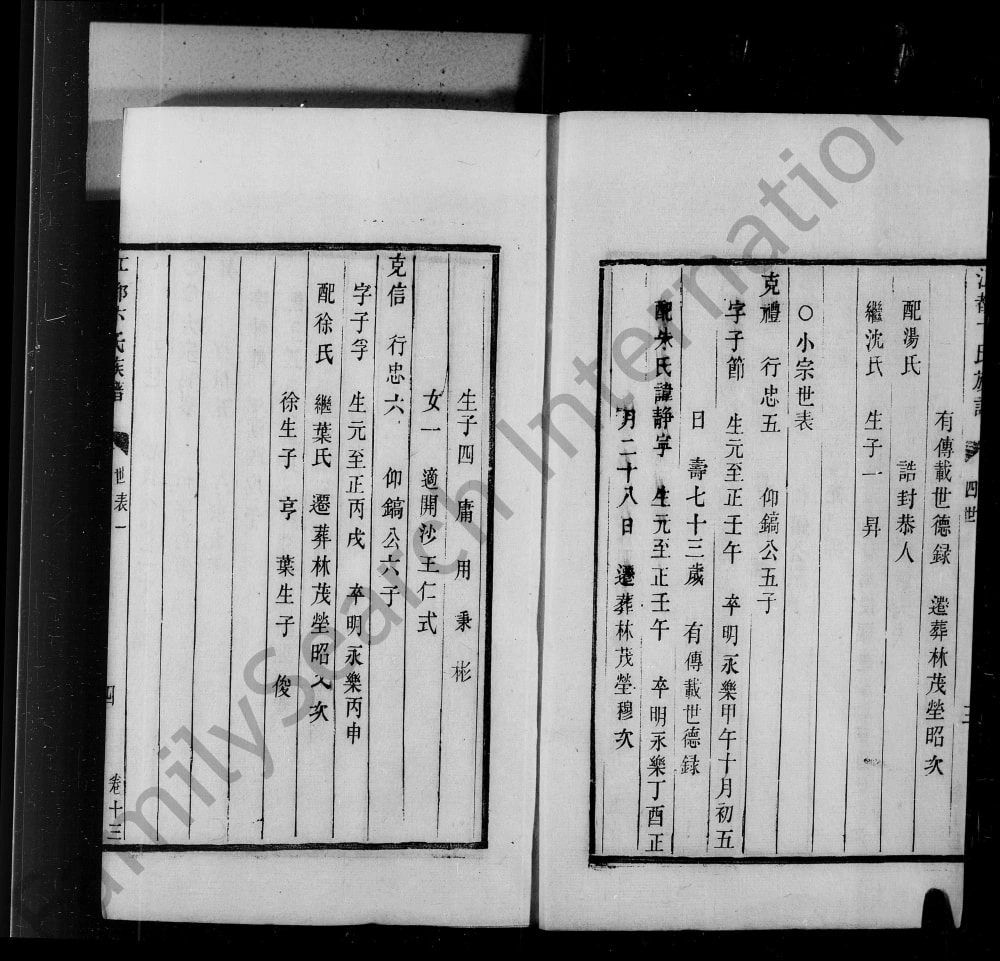 有傳載世德録　遷葬林茂塋昭次
配湯氏　誥封恭人
繼沈氏　生子一　昇
○小宗世表
克禮　行忠五　仰鎬公五子
字子節　生元至正壬午　卒明永樂甲午十月初五
日　壽七十三歲　有傳載世德録
配朱氏諱静寧　生元至正壬午　卒明永樂丁酉正
月二十八日　遷葬林茂塋穆次
四世
三
生子四　庸　用　秉　彬
女一　適開沙王仁式
克信　行忠六　仰鎬公六子
字子孚　生元至正丙戌　卒明永樂丙申
配徐氏　繼葉氏　遷葬林茂塋昭次
徐生子　亨　葉生子　俊
氏族譜　世表一　四　卷十三
FamilySearch International